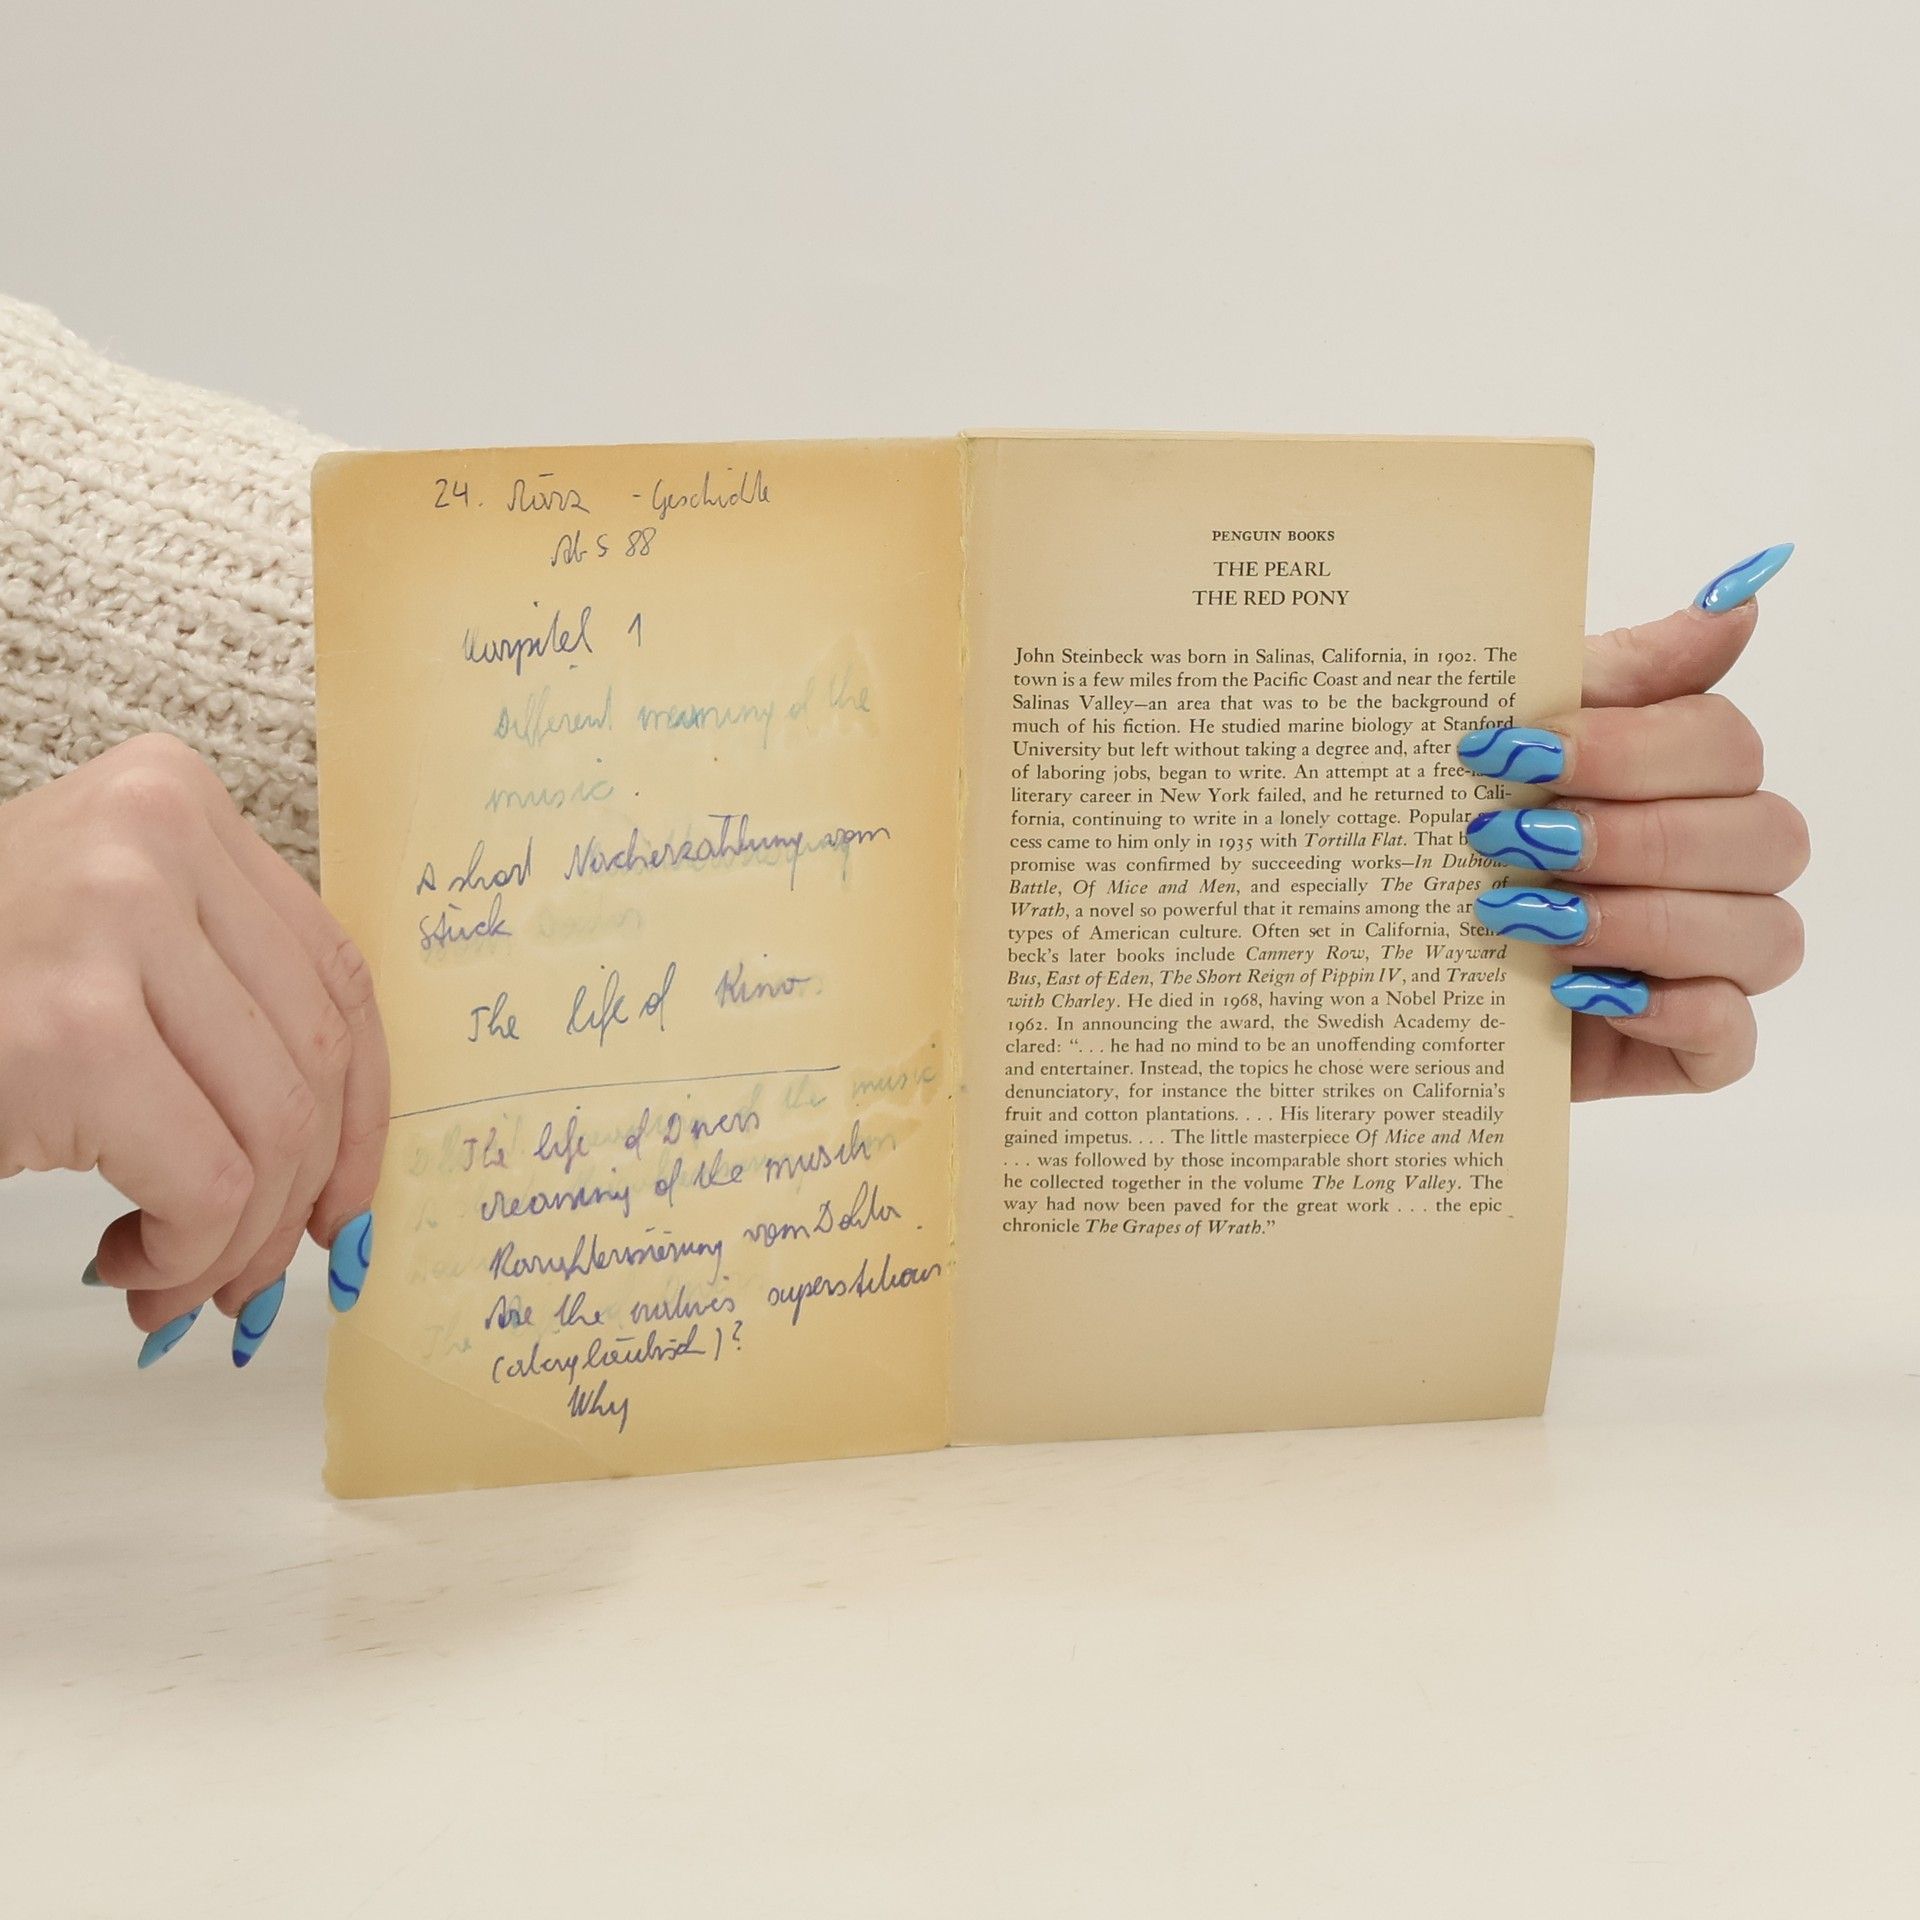 24. März - Geschichte
Ab S 88
Kapitel 1
Different meaning of the
music.
A short Nacherzählung vom
Stück
The life of Kino
The life of Divers
meaning of the musik
vom
Are the natives superstitious
(abergläubisch)?
Why
PENGUIN BOOKS
THE PEARL
THE RED PONY
John Steinbeck was born in Salinas, California, in 1902. The
town is a few miles from the Pacific Coast and near the fertile
Salinas Valley—an area that was to be the background of
much of his fiction. He studied marine biology at Stanford
University but left without taking a degree and, after
of laboring jobs, began to write. An attempt at a free-
literary career in New York failed, and he returned to Cali-
fornia, continuing to write in a lonely cottage. Popular
cess came to him only in 1935 with Tortilla Flat. That
promise was confirmed by succeeding works—In Dubious
Battle, Of Mice and Men, and especially The Grapes of
Wrath, a novel so powerful that it remains among the
types of American culture. Often set in California, Stein-
beck's later books include Cannery Row, The Wayward
Bus, East of Eden, The Short Reign of Pippin IV, and Travels
with Charley. He died in 1968, having won a Nobel Prize in
1962. In announcing the award, the Swedish Academy de-
clared: “. . . he had no mind to be an unoffending comforter
and entertainer. Instead, the topics he chose were serious and
denunciatory, for instance the bitter strikes on California's
fruit and cotton plantations. . . . His literary power steadily
gained impetus. . . . The little masterpiece Of Mice and Men
. . . was followed by those incomparable short stories which
he collected together in the volume The Long Valley. The
way had now been paved for the great work . . . the epic
chronicle The Grapes of Wrath.”